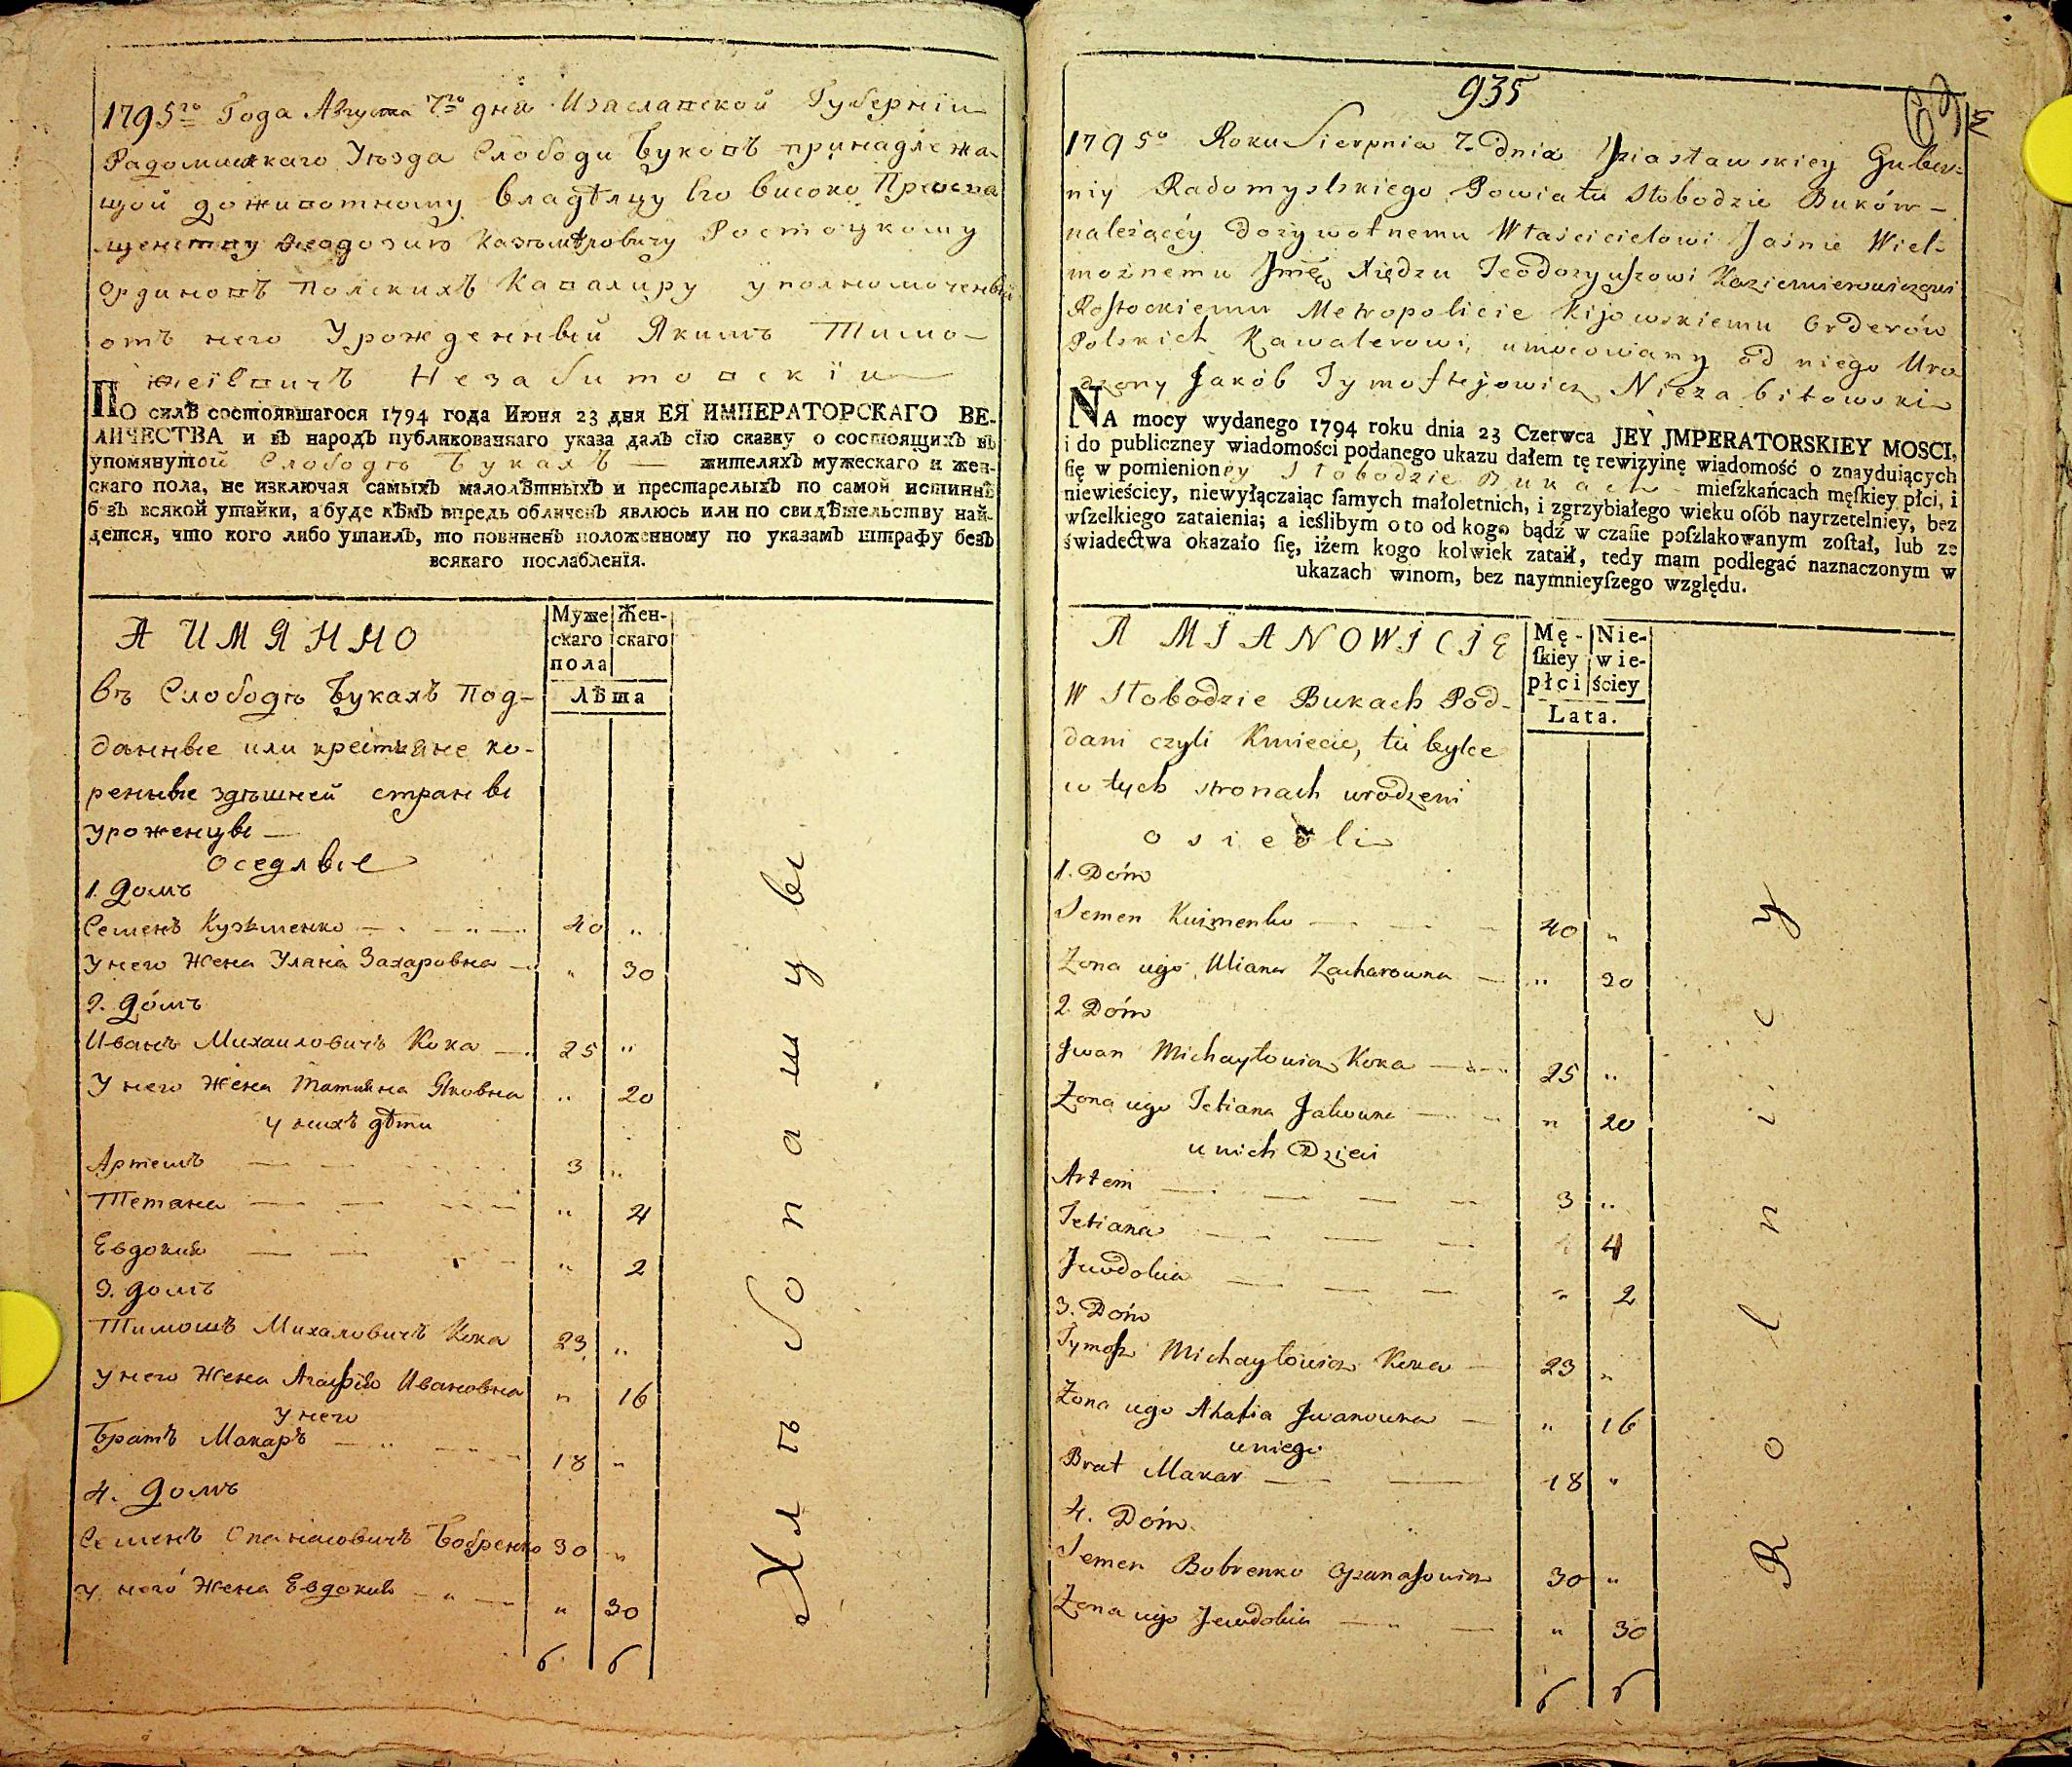 1795го Года Августа 7го дня Изаславской Губерніи
Радомишлскаго Уѣзда Слободи Буковъ принадлежа-
щой доживотному владѣлцу Его високо Преосвя
щенству Ѳеодозию Казѣмѣровичу Ростоцкому
Ординовъ Полскихъ Кавалиру уполномоченный
отъ него Урожденный Якимъ Тимо-
ѳеівичъ Незабитовскій
ПО силѣ состоявшагося 1794 года Июня 23 дня ЕЯ ИМПЕРАТОРСКАГО ВЕ-
ЛИЧЕСТВА и въ народъ публикованнаго указа далъ сїю сказку о состоящихъ въ
упомянутой Слободѣ Букахъ — жителяхъ мужескаго и жен-
скаго пола, не изключая самыхъ малолѣтныхъ и престарелыхъ по самой истиннѣ
безъ всякой утайки, а буде кѣмъ впредь обличенъ явлюсь или по свидѣтельству най-
дется, что кого либо утаилъ, то повиненъ положенному по указамъ штрафу безъ
всякаго послабленїя.
А ИМЯННО
Муже Жен-
скаго скаго
пола
лѣта
Въ Слободѣ Букахъ Под-
данные или крестьяне ко-
ренные здѣшней страны
уроженцы —
оседлые
1. Домъ
Семенъ Кузьменко — 40 "
У него Жена Уляна Захаровна — " 30
2. Домъ
Иванъ Михаиловичъ Кока — 25 "
У него Жена Татияна Яковна " 20
у нихъ дѣти
Артемъ — 3 "
Тетяна — " 4
Евдокия — " 2
3. Домъ
Тимошъ Михаловичъ Кока 23 "
У него Жена Агафія Ивановна " 16
У него
Братъ Макаръ — 18 "
4. Домъ
Семенъ Опанасовичъ Бобренко 30 "
У него Жена Евдокия — " 30
6 6
Хлѣбопашцы
935
1795o Roku Sierpnia 7. dnia Iziasławskiey Guber-
niy Radomyslskiego Powiatu Słobodzie Buków —
należącéy dożywotnemu Właścicielowi Jaśnie Wiel-
możnemu Jmę Xiędzu Teodozyuszowi Kazimierowiczowi
Rostockiemu Metropolicie Kijowskiemu Orderów
Polskich Kawalerowi, umocowany od niego Uro
dzony Jakób Tymoftejowicz Niezabitowski
NA mocy wydanego 1794 roku dnia 23 Czerwca JEY JMPERATORSKIEY MOSCI,
i do publiczney wiadomości podanego ukazu dałem tę rewizyinę wiadomość o znayduiących
ſię w pomienioney Słobodzie Bukach mieſzkańcach męſkiey płci, i
niewieściey, niewyłączaiąc ſamych małoletnich, i zgrzybiałego wieku oſób nayrzetelniey, bez
wſzelkiego zataienia; a ieślibym oto od kogo bądź w czaſie poſzlakowanym zoſtał, lub ze
świadectwa okazało ſię, iżem kogo kolwiek zataił, tedy mam podlegać naznaczonym w
ukazach winom, bez naymnieyſzego względu.
A MIANOWICIE
Mę- Nie-
ſkiey wie-
płci ściey
Lata.
W Słobodzie Bukach Pod-
dani czyli Kmiecie, tu bylce
w tych stronach urodzeni
osiedli
1. Dóm
Semen Kuźmenko — 40 "
Żona iego Uliana Zacharowna — " 30
2. Dóm
Jwan Michayłowicz Koka — 25 "
Żona iego Tetiana Jakowna — " 20
u nich Dzieci
Artem — 3 "
Tetiana — " 4
Jewdokia — " 2
3. Dóm
Tymosz Michayłowicz Koka — 23 "
Żona iego Ahafia Jwanowna — " 16
u niego
Brat Makar — 18 "
4. Dóm
Semen Bobrenko Opanasowicz 30 "
Żona iego Jewdokia — " 30
6 6
Rolnicy